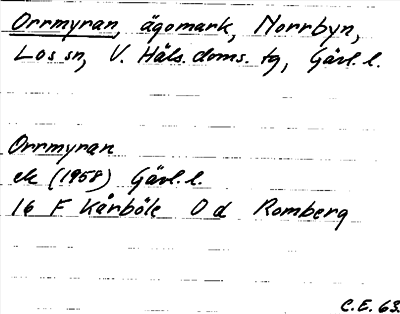 Orrmyran, ägomark, Norrbyn,
Los sn, V. Häls. doms. tg, Gävl. l.
Orrmyran
ek (1958) Gävl. l.
16 F Kårböle 0 d Romberg
C.E. 63.